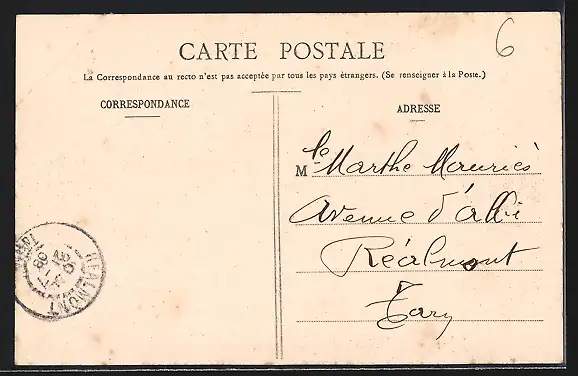 6
CARTE POSTALE
La Correspondance au recto n'est pas acceptée par tous les pays étrangers. (Se renseigner à la Poste.)
CORRESPONDANCE
ADRESSE
Mlle Marthe Mauriès
Avenue d'albi
Réalmont
Tarn
REALMONT